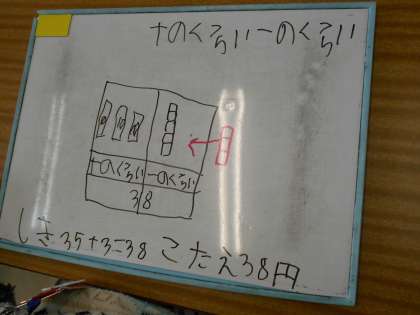 十のくらい一のくらい
十のくらい 一のくらい
38
しき35+3=38 こたえ38円